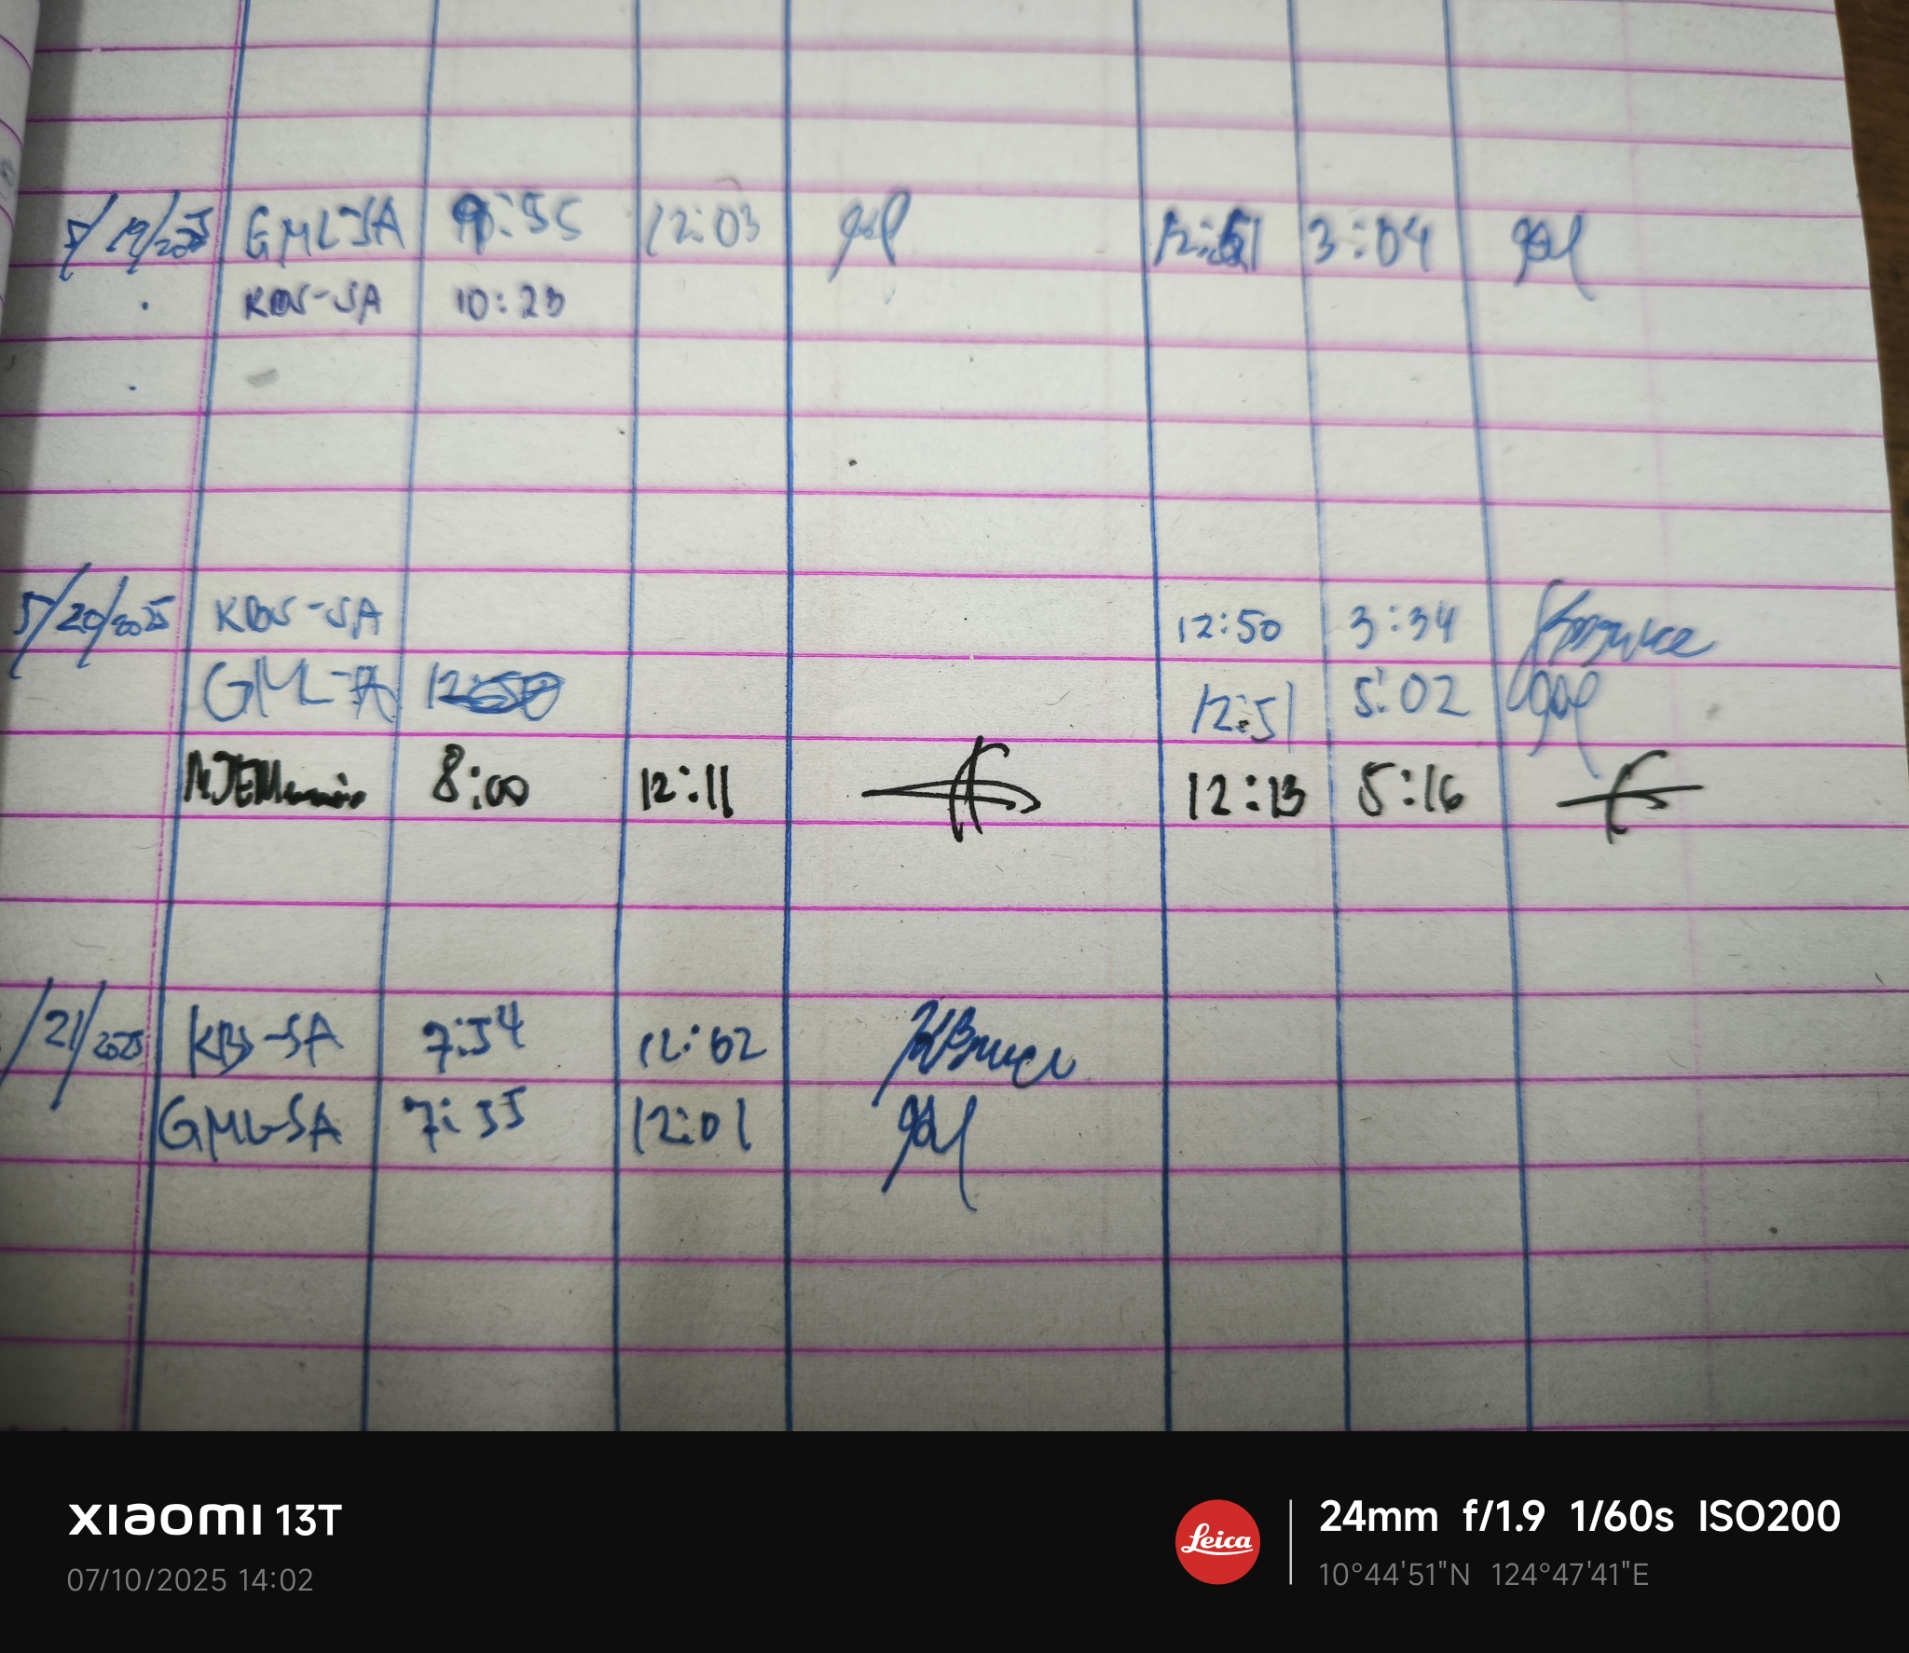 5/19/2025 GML-SA 9:55 12:03 12:51 3:04
KBS-SA 10:23
5/20/2025 KBS-SA 12:50 3:34
GML-SA 12:51 5:02
8:00 12:11 12:13 5:16
/21/2025 KBS-SA 7:54 12:02
GML-SA 7:55 12:01
XIAOMI 13T
07/10/2025 14:02
Leica
24mm f/1.9 1/60s ISO200
10°44'51"N 124°47'41"E